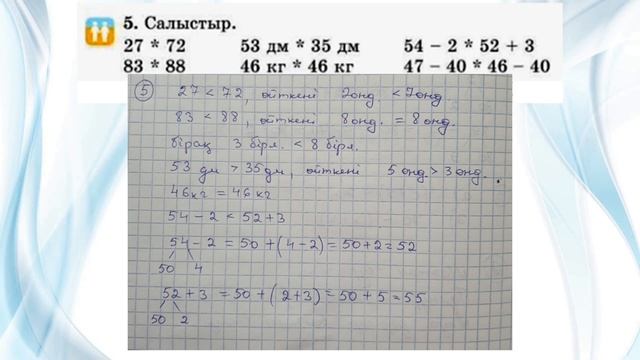 5. Салыстыр.
27 * 72 53 дм * 35 дм 54 – 2 * 52 + 3
83 * 88 46 кг * 46 кг 47 – 40 * 46 – 40
5 27 < 72, өйткені 2 онд. < 7 онд
83 < 88, өйткені 8 онд. = 8 онд.
бірақ 3 бірл. < 8 бірл.
53 дм > 35 дм, өйткені 5 онд > 3 онд.
46 кг = 46 кг
54 – 2 < 52 + 3
54 – 2 = 50 + (4 – 2) = 50 + 2 = 52
50 4
52 + 3 = 50 + (2 + 3) = 50 + 5 = 55
50 2